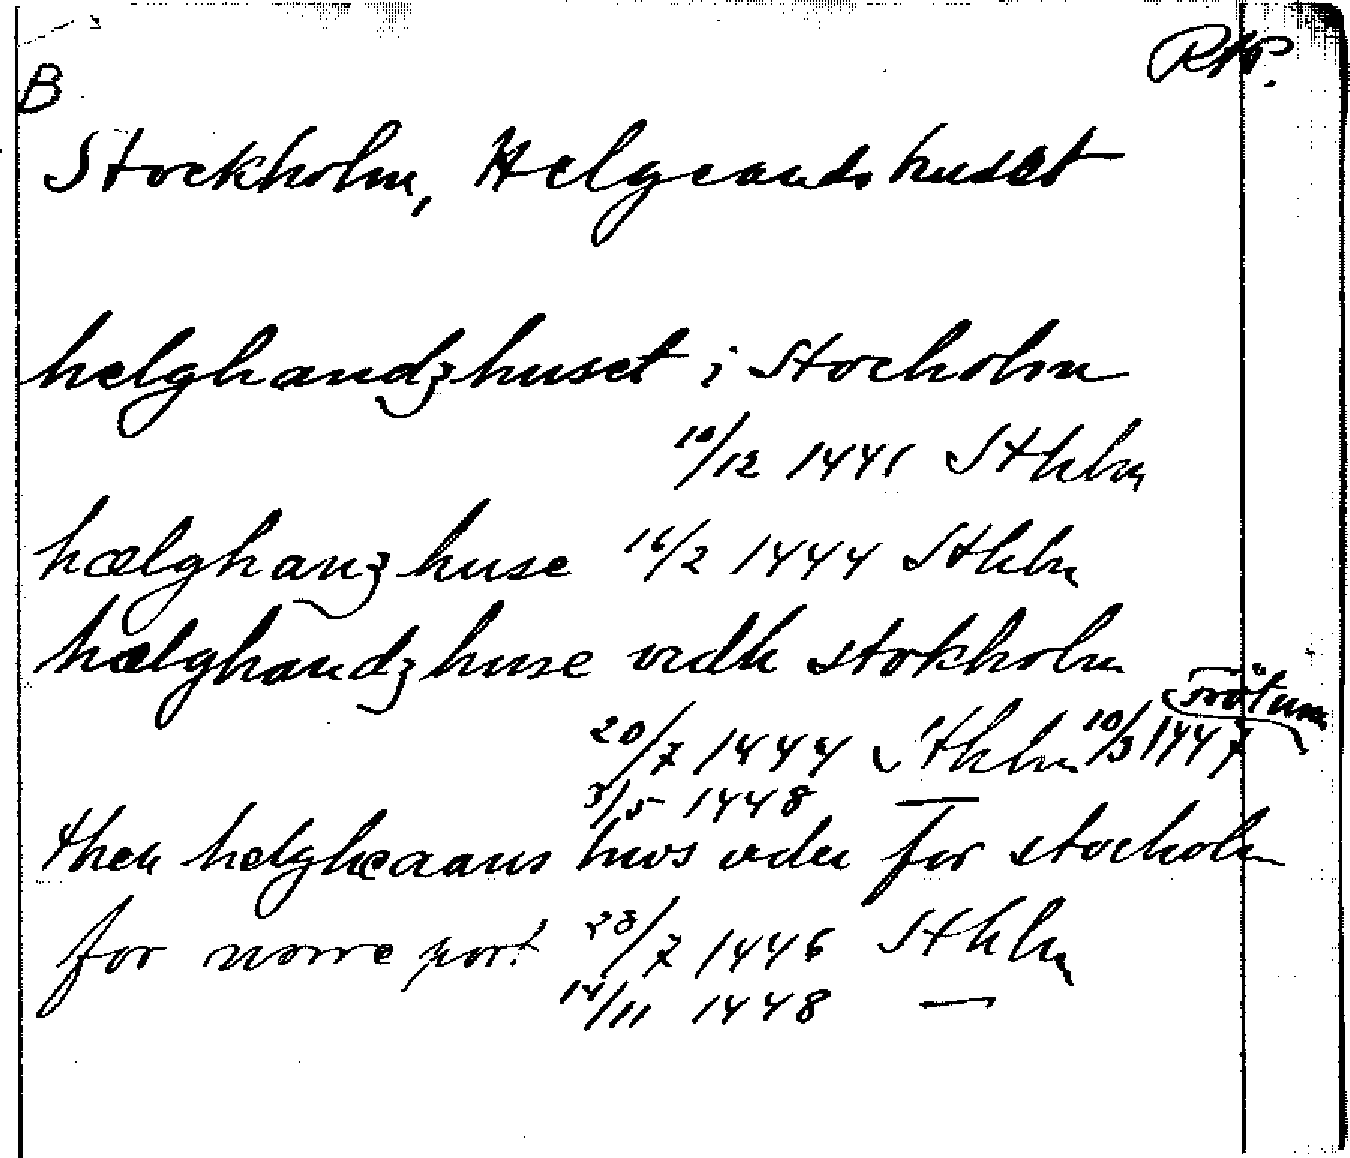 B
Stockholm, Helgeandshuset
helghandzhuset i Stocholm
10/12 1441 Sthlm
hælghanzhuse 16/2 1444 Sthlm
hælghandzhuse vidh stokholm
20/7 1444 Sthlm 10/3 1447
3/5 1448 —
then helgheaans hws vden for stocholm
for nørre port 23/7 1446 Sthlm
14/11 1448 —